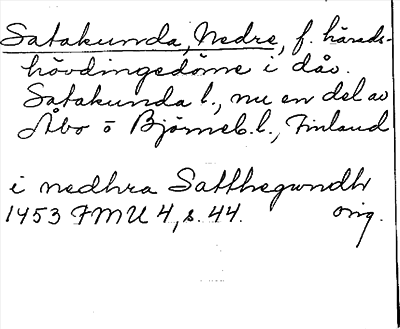 Satakunda, Nedre, f. härads-
hövdingedöme i dåv.
Satakunda l., nu en del av
Åbo o Björneb. l., Finland
i nedhra Satthegwndh
1453 FMU 4, s. 44. orig.